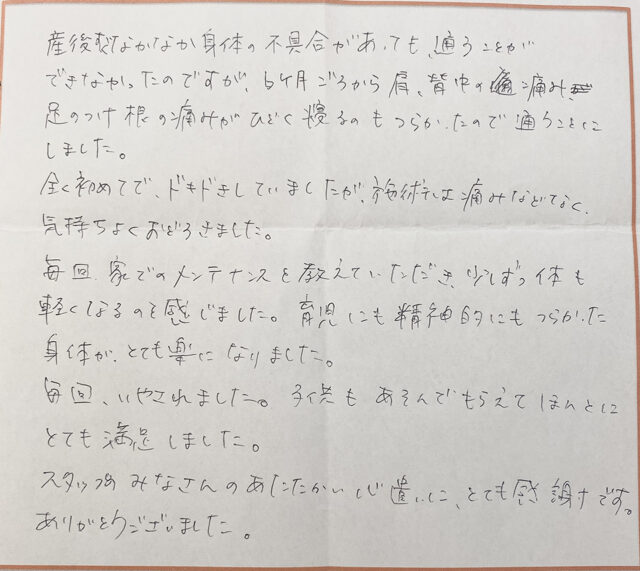 産後はなかなか身体の不具合があっても、通うことが
できなかったのですが、6ヶ月ごろから肩、背中の痛み、
足のつけ根の痛みがひどく寝るのもつらかったので通うことに
しました。
全く初めてで、ドキドキしていましたが、施術では痛みなどなく、
気持ちよくおどろきました。
毎回、家でのメンテナンスを教えていただき、少しずつ体も
軽くなるのを感じました。育児にも精神的にもつらかった
身体が、とても楽になりました。
毎回、いやされました。子供もあそんでもらえてほんとに
とても満足しました。
スタッフのみなさんのあたたかい心遣いに、とても感謝です。
ありがとうございました。